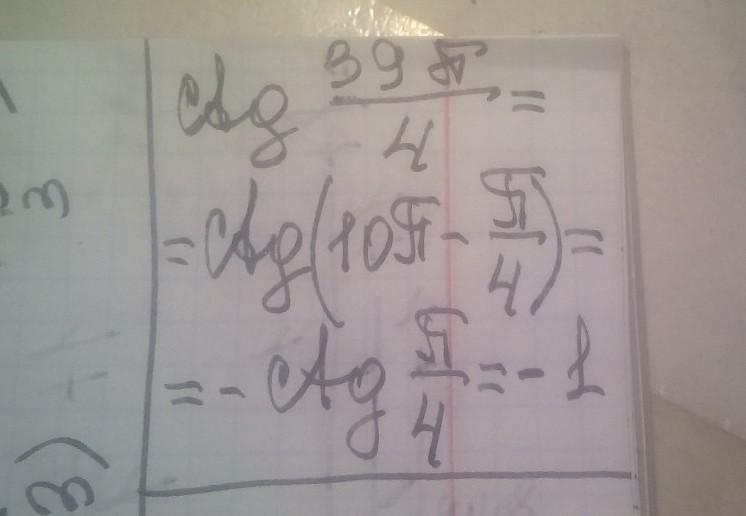 ctg 39π/4 =
= ctg(10π - π/4) =
= - ctg π/4 = - 1
3
3)